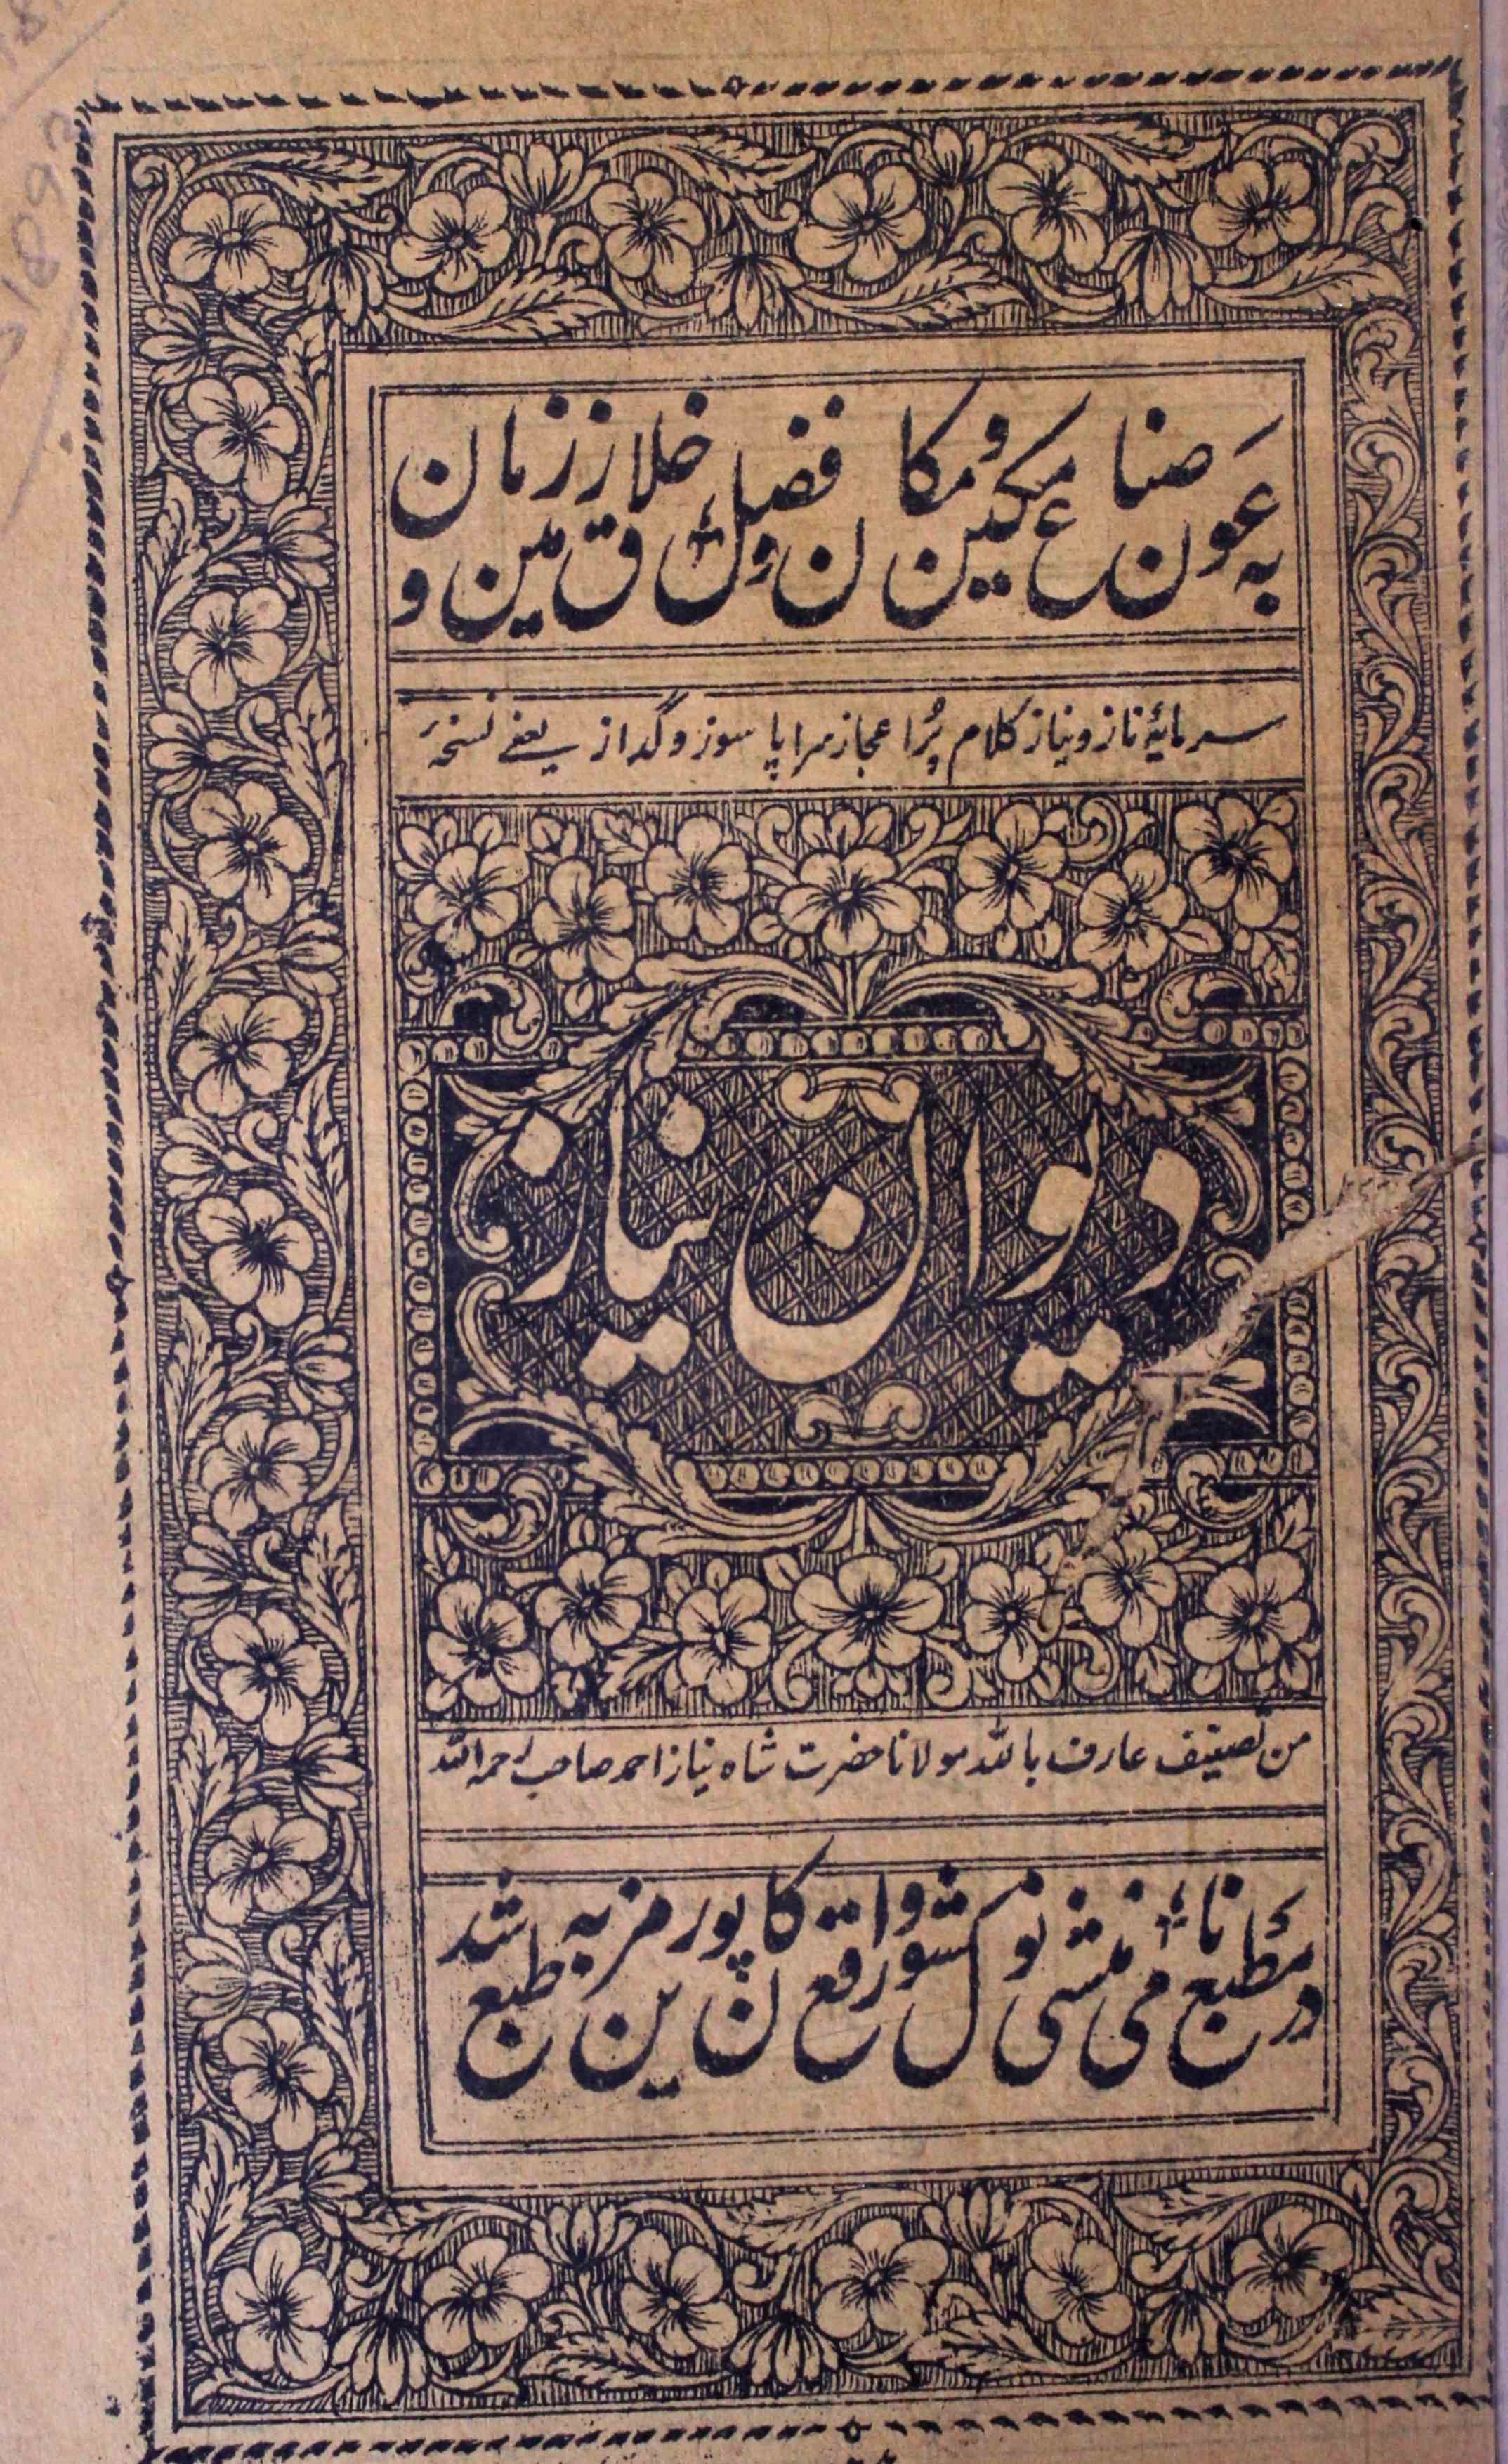 بہ عون صناع مکین و مکان و فضل خلاق زمین و زمان
سرمایۂ ناز و نیاز کلام پُر اعجاز سراپا سوز و گداز یعنے نسخۂ
دیوان نیاز
من تصنیف عارف باللہ مولانا حضرت شاہ نیاز احمد صاحب رحمہ اللہ
در مطبع نامی منشی نولکشور واقع کانپور مزین بہ طبع شد